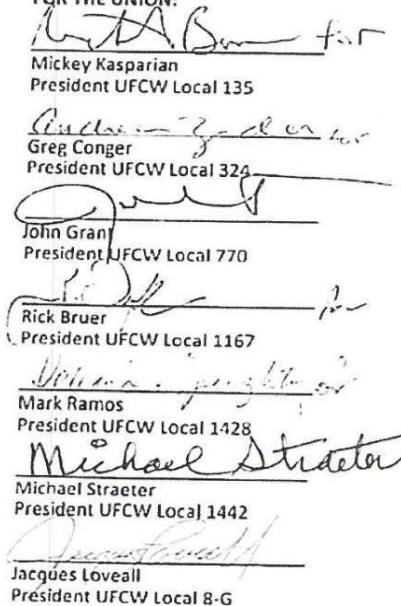 FOR THE UNION:
for
Mickey Kasparian
President UFCW Local 135
for
Greg Conger
President UFCW Local 324
John Grant
President UFCW Local 770
for
Rick Bruer
President UFCW Local 1167
for
Mark Ramos
President UFCW Local 1428
Michael Straeter
Michael Straeter
President UFCW Local 1442
Jacques Loveall
President UFCW Local 8-G